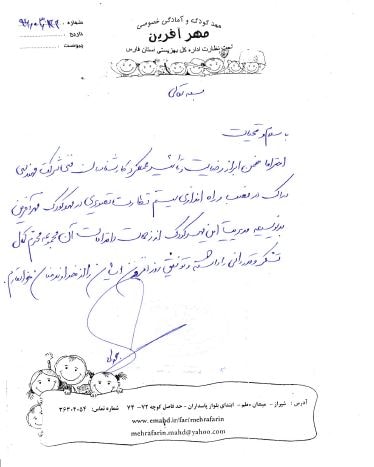 مهد کودک و آمادگی خصوصی
مهر آفرین
تحت نظارت اداره کل بهزیستی استان فارس
شماره :
تاریخ :
پیوست :
بسمه تعالی
با سلام و تحیات
احتراما ضمن ابراز رضایت و تائید عملکرد کارشناسان فنی شرکت مهندسی
در نصب و راه اندازی سیستم نظارت تصویری در مهد کودک مهرآفرین
بدینوسیله مدیریت این مهد کودک از زحمات و اقدامات آن مجموعه محترم کمال
تشکر و قدردانی را داشته و توفیق روز افزون ایشان را از خداوند منان خواهانم.
آدرس : شیراز - میدان معلم - ابتدای بلوار پاسداران - حد فاصل کوچه ۷۲ - ۷۴ شماره تماس: ۳۶۳۰۴۰۵۴
www.emahd.ir/far/mehrafarin
mehrafarin.mahd@yahoo.com